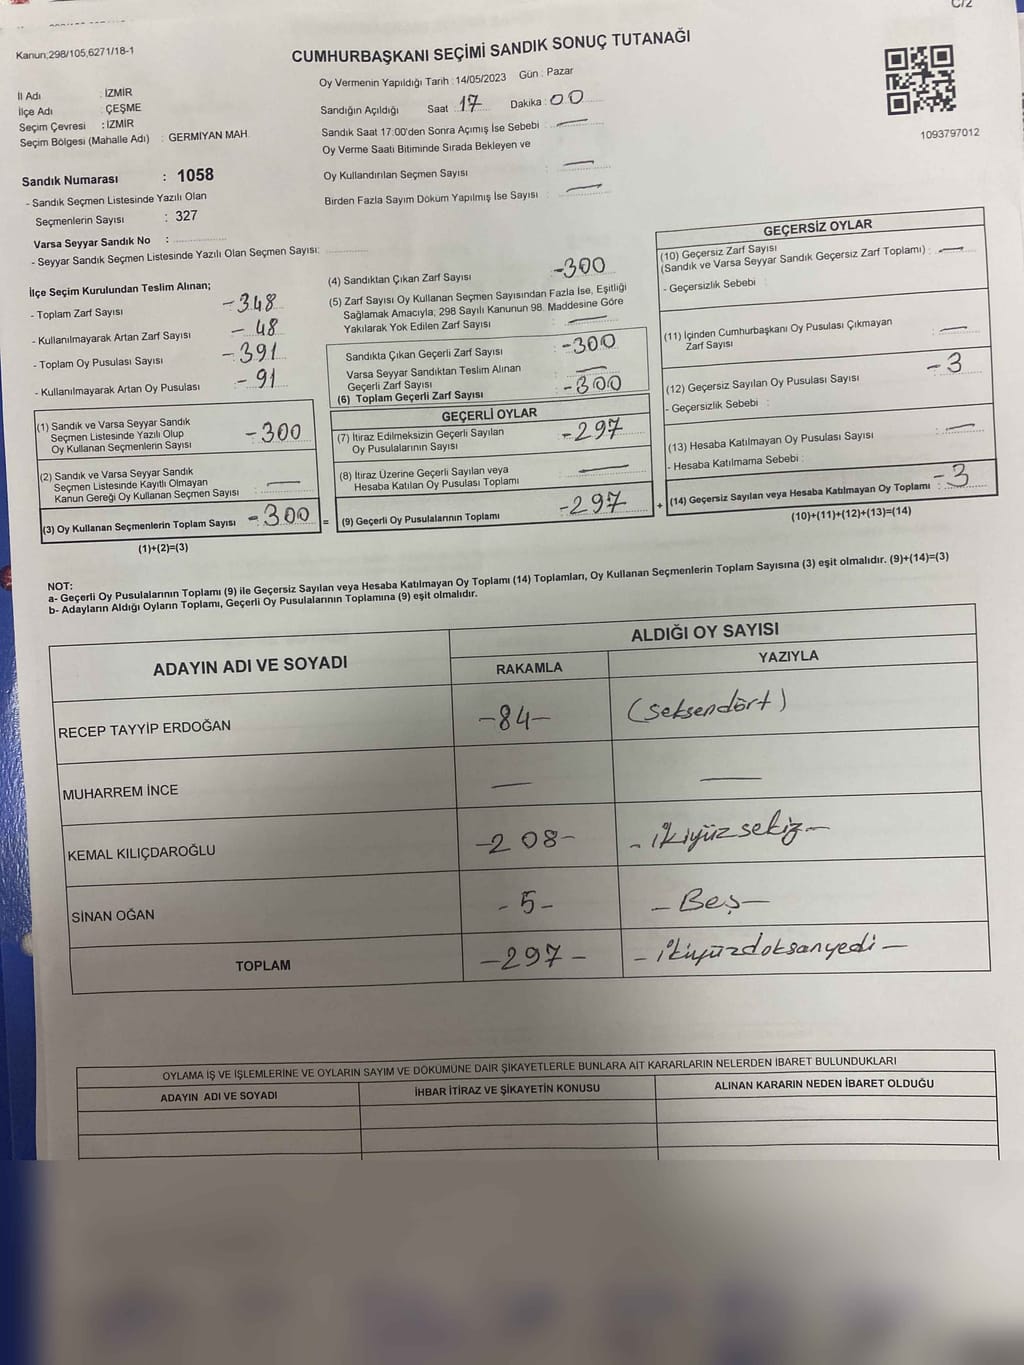 C/2
Kanun;298/105,6271/18-1
CUMHURBAŞKANI SEÇİMİ SANDIK SONUÇ TUTANAĞI
Oy Vermenin Yapıldığı Tarih : 14/05/2023 Gün : Pazar
İl Adı : İZMİR
İlçe Adı : ÇEŞME
Seçim Çevresi : İZMİR
Seçim Bölgesi (Mahalle Adı) : GERMİYAN MAH.
Sandığın Açıldığı Saat 17 Dakika : 00
Sandık Saat 17:00'den Sonra Açımış İse Sebebi : —
Oy Verme Saati Bitiminde Sırada Bekleyen ve
Oy Kullandırılan Seçmen Sayısı : —
Birden Fazla Sayım Döküm Yapılmış İse Sayısı : —
1093797012
Sandık Numarası : 1058
- Sandık Seçmen Listesinde Yazılı Olan
Seçmenlerin Sayısı : 327
Varsa Seyyar Sandık No :
- Seyyar Sandık Seçmen Listesinde Yazılı Olan Seçmen Sayısı:
İlçe Seçim Kurulundan Teslim Alınan;
- Toplam Zarf Sayısı - 348
- Kullanılmayarak Artan Zarf Sayısı - 48
- Toplam Oy Pusulası Sayısı - 391
- Kullanılmayarak Artan Oy Pusulası - 91
(1) Sandık ve Varsa Seyyar Sandık
Seçmen Listesinde Yazılı Olup
Oy Kullanan Seçmenlerin Sayısı - 300
(2) Sandık ve Varsa Seyyar Sandık
Seçmen Listesinde Kayıtlı Olmayan
Kanun Gereği Oy Kullanan Seçmen Sayısı : —
(3) Oy Kullanan Seçmenlerin Toplam Sayısı - 300 =
(1)+(2)=(3)
(4) Sandıktan Çıkan Zarf Sayısı - 300
(5) Zarf Sayısı Oy Kullanan Seçmen Sayısından Fazla İse, Eşitliği
Sağlamak Amacıyla; 298 Sayılı Kanunun 98. Maddesine Göre
Yakılarak Yok Edilen Zarf Sayısı : —
Sandıkta Çıkan Geçerli Zarf Sayısı - 300
Varsa Seyyar Sandıktan Teslim Alınan
Geçerli Zarf Sayısı : —
(6) Toplam Geçerli Zarf Sayısı - 300
GEÇERLİ OYLAR
(7) İtiraz Edilmeksizin Geçerli Sayılan
Oy Pusulalarının Sayısı - 297
(8) İtiraz Üzerine Geçerli Sayılan veya
Hesaba Katılan Oy Pusulası Toplamı : —
(9) Geçerli Oy Pusulalarının Toplamı - 297 +
GEÇERSİZ OYLAR
(10) Geçersiz Zarf Sayısı
(Sandık ve Varsa Seyyar Sandık Geçersiz Zarf Toplamı) : —
- Geçersizlik Sebebi :
(11) İçinden Cumhurbaşkanı Oy Pusulası Çıkmayan
Zarf Sayısı : —
(12) Geçersiz Sayılan Oy Pusulası Sayısı - 3
- Geçersizlik Sebebi :
(13) Hesaba Katılmayan Oy Pusulası Sayısı : —
- Hesaba Katılmama Sebebi :
(14) Geçersiz Sayılan veya Hesaba Katılmayan Oy Toplamı : - 3
(10)+(11)+(12)+(13)=(14)
NOT:
a- Geçerli Oy Pusulalarının Toplamı (9) ile Geçersiz Sayılan veya Hesaba Katılmayan Oy Toplamı (14) Toplamları, Oy Kullanan Seçmenlerin Toplam Sayısına (3) eşit olmalıdır. (9)+(14)=(3)
b- Adayların Aldığı Oyların Toplamı, Geçerli Oy Pusulalarının Toplamına (9) eşit olmalıdır.
ADAYIN ADI VE SOYADI ALDIĞI OY SAYISI
RAKAMLA YAZIYLA
RECEP TAYYİP ERDOĞAN -84- (seksendört)
MUHARREM İNCE — —
KEMAL KILIÇDAROĞLU -208- - ikiyüzsekiz -
SİNAN OĞAN - 5 - - Beş -
TOPLAM - 297 - - ikiyüzdoksanyedi -
OYLAMA İŞ VE İŞLEMLERİNE VE OYLARIN SAYIM VE DÖKÜMÜNE DAİR ŞİKAYETLERLE BUNLARA AİT KARARLARIN NELERDEN İBARET BULUNDUKLARI
ADAYIN ADI VE SOYADI İHBAR İTİRAZ VE ŞİKAYETİN KONUSU ALINAN KARARIN NEDEN İBARET OLDUĞU